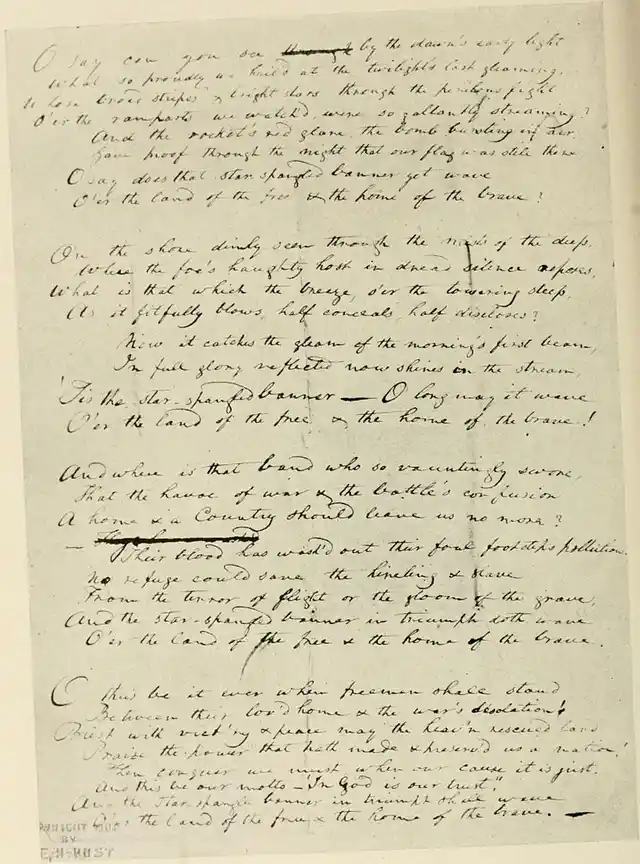 O say can you see through by the dawn's early light
What so proudly we hail'd at the twilight's last gleaming,
Whose broad stripes & bright stars through the perilous fight
O'er the ramparts we watch'd, were so gallantly streaming?
And the rocket's red glare, the bomb bursting in air,
Gave proof through the night that our flag was still there
O say does that star spangled banner yet wave
O'er the land of the free & the home of the brave?
On the shore dimly seen through the mists of the deep,
Where the foe's haughty host in dread silence reposes,
What is that which the breeze, o'er the towering steep,
As it fitfully blows, half conceals, half discloses?
Now it catches the gleam of the morning's first beam,
In full glory reflected now shines in the stream,
'Tis the star-spangled banner — O long may it wave
O'er the land of the free & the home of the brave!
And where is that band who so vauntingly swore,
That the havoc of war & the battle's confusion
A home & a Country should leave us no more?
—
Their blood has wash'd out their foul footsteps pollution.
No refuge could save the hireling & slave
From the terror of flight or the gloom of the grave,
And the star-spangled banner in triumph doth wave
O'er the land of the free & the home of the brave.
O thus be it ever when freemen shall stand
Between their lov'd home & the war's desolation!
Blest with vict'ry & peace may the heav'n rescued land
Praise the power that hath made & preserv'd us a nation!
Then conquer we must when our cause it is just,
And this be our motto — "In God is our trust,"
And the star-spangled banner in triumph shall wave
O'er the land of the free & the home of the brave. —
BY